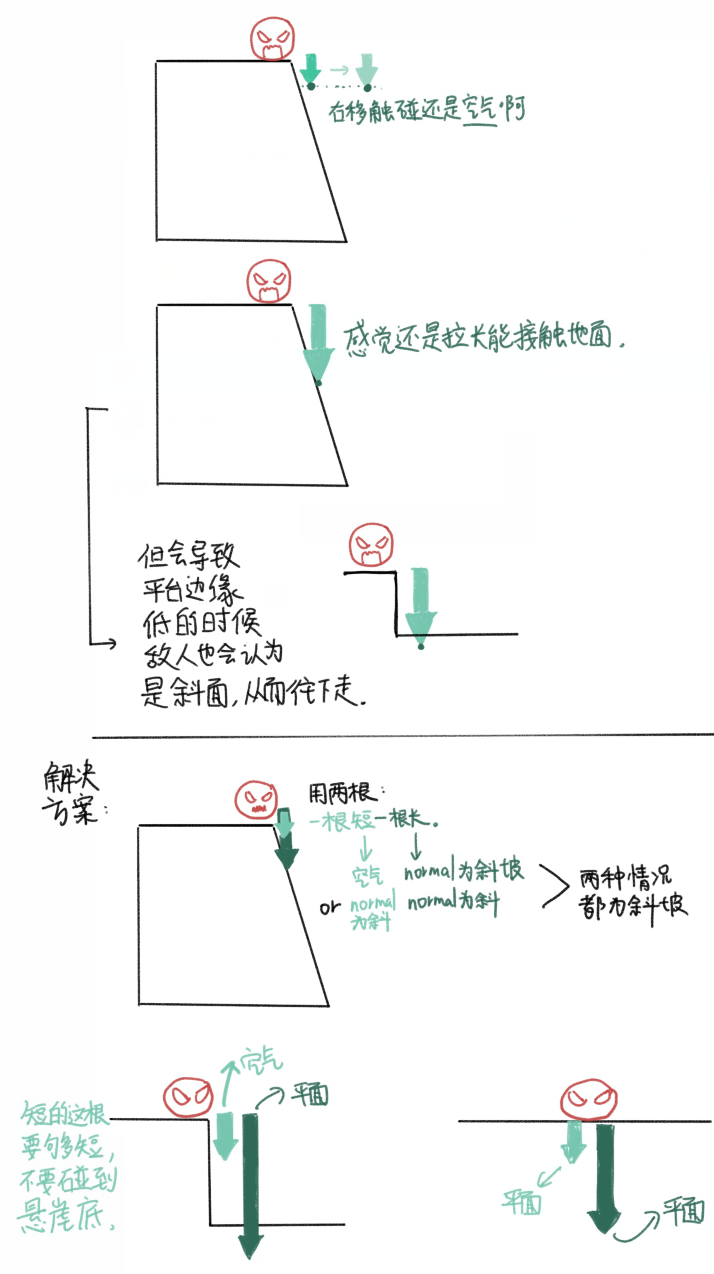 右移触碰还是空气啊
感觉还是拉长能接触地面.
但会导致
平台边缘
低的时候
敌人也会认为
是斜面,从而往下走.
解决
方案:
用两根:
一根短一根长。
空气 normal为斜坡
or normal为斜 normal为斜
两种情况
都为斜坡
空气
平面
短的这根
要够多短,
不要碰到
悬崖底.
平面
平面